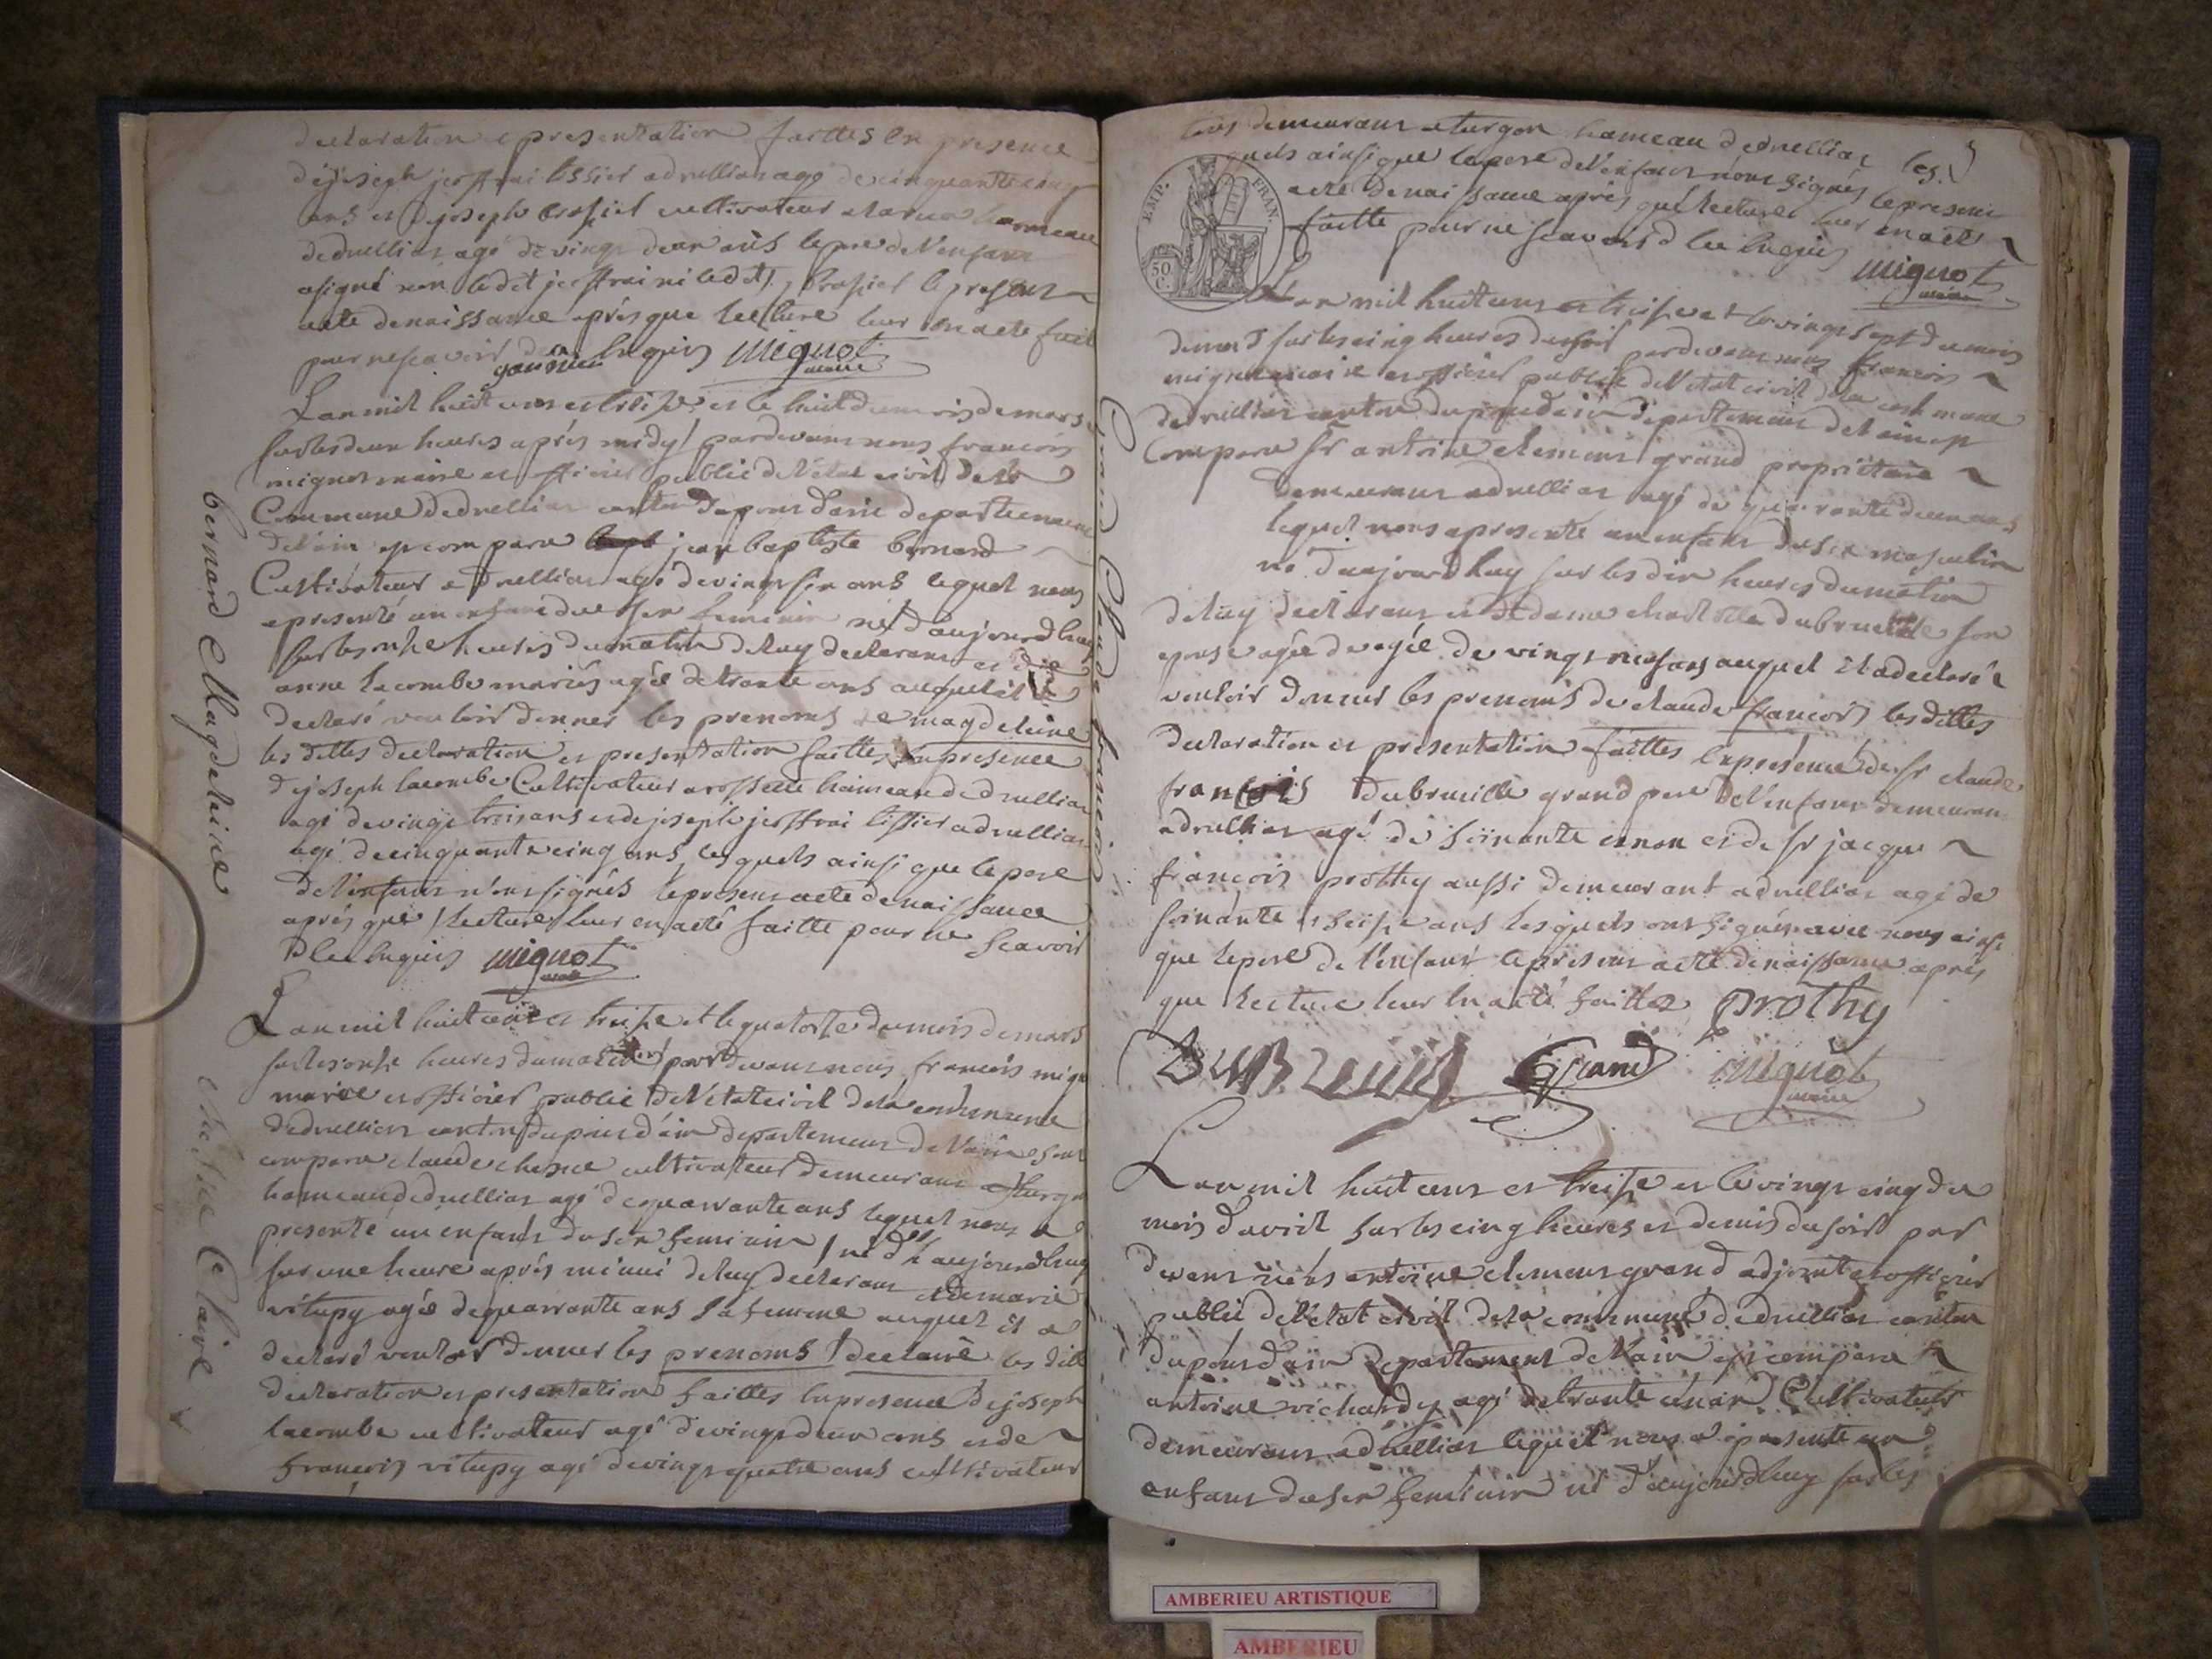 declaration e presentation faittes en presence
de joseph jeoffrai tissier a druillias agé de cinquante cinq
ans et de joseph crosier cultivateur hameau
de druillias agé de vingt deux ans le pere de l'enfant
a signé non ledit jeoffrai ni ledit le present
acte de naissance après que lecture leur en a ete fait
pour ne scavoir de ce enquis mignot
maire
L'an mil huit cens et treise et le huit du mois de mars
sur les deux heures après midy pardevant nous françois
mignot maire et officier public de l'état civil de la
Commune de druillias canton du pont d'ain departement
de l'ain est comparu jean baptiste bernard
Cultivateur a druillias agé de vingt six ans lequel nous
a presenté un enfant du sex feminin né d'aujourd'huy
sur les onse heures du matin de luy declarant et de
anne lacombe mariés agée de trante ans auquel il a
declaré vouloir donner les prenoms de magdeleine
les dittes declaration et presentation faittes en presence
de joseph lacombe Cultivateur a rossette hameau de druillias
agé de vingt trois ans et de joseph jeoffrai tissier a druillias
agé de cinquante cinq ans, lesquels ainsi que le pere
de l'enfant n'ont signés le present acte de naissance
après que lecture leur en a eté faitte pour ne scavoir
de ce enquis mignot
maire
L'an mil huit cens et treise et le quatorse du mois de mars
sur les onse heures du matin pardevant nous françois mignot
maire et officier public de l'etat civil de la commune
de druillias canton du pont d'ain departement de l'ain est
comparu claude chesne cultivateur demeurant a turgon
hameau de druillias agé de quarrante ans lequel nous a
presenté un enfant du sex feminin né d'aujourd'huy
sur une heure après minui de luy declarant et de marie
vitupy agée de quarrante ans sa femme auquel il a
declaré vouloir donner les prenoms de claire les ditt
declaration et presentation faittes en presence de joseph
lacombe cultivateur agé de vingt deux ans et de
françois vitupy agé de vingt quatre ans cultivateur
bernard Magdeleine
chesne Claire
tous demeurant a turgon hameau de druillias les
quels ainsi que le pere de l'enfant n'ont signés le present
acte de naissance après que lecture leur en a eté
faitte pour ne scavoir de ce enquis mignot
maire
EMP. FRAN.
50 C.
L'an mil huit cens et treise et le vingt sept du mois
de mars sur les cinq heures du soir pardevant nous françois
mignot maire et officier public de l'etat civil de la commune
de druillias canton du pont d'ain departement de l'ain est
Comparu sr antoine clement grand proprietaire
demeurant a druillias agé de quarrante deux ans
lequel nous a presenté un enfant du sex masculin
né d'aujourd'huy sur les dix heures du matin
de luy declarant et de dame charlotte dubruille son
epouse agée de agée de vingt neuf ans auquel il a declaré
vouloir donner les prenoms de claude françois les dittes
declaration et presentation faittes en presence de sr claude
françois dubruille grand pere de l'enfant demeurant
a druillias agé de soixante et non et de sr jacque
françois prothy aussi demeurant a druillias agé de
soixante et seise ans lesquels ont signés avec nous ainsi
que le pere de l'enfant le present acte de naissance après
que lecture leur en a eté faitte prothy
Grand mignot
maire
grand Claude francois
L'an mil huit cens et treise et le vingt cinq du
mois d'avril sur les cinq heures et demis du soir par
devant nous antoine clement grand adjoint et officier
public de l'etat civil de la commune de druillias canton
du pont d'ain departement de l'ain est comparu
antoine richardy agé de trante et un an Cultivateur
demeurant a druillias lequel nous a presenté un
enfant du sex feminin né d'aujourd'huy sur les
AMBERIEU ARTISTIQUE
AMBERIEU